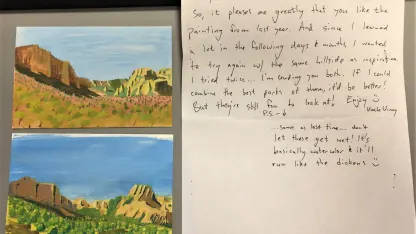 So, it pleases me greatly that you like the
painting from last year. And since I learned
a lot in the following days & months, I wanted
to try again w/ the same hillside as inspiration.
I tried twice... I'm sending you both. If I could
combine the best parts of them, it'd be better!
But they're still fun to look at! Enjoy
Uncle Vinny
P.S.
...same as last time... don't
let these get wet! It's
basically watercolor & it'll
run like the dickens